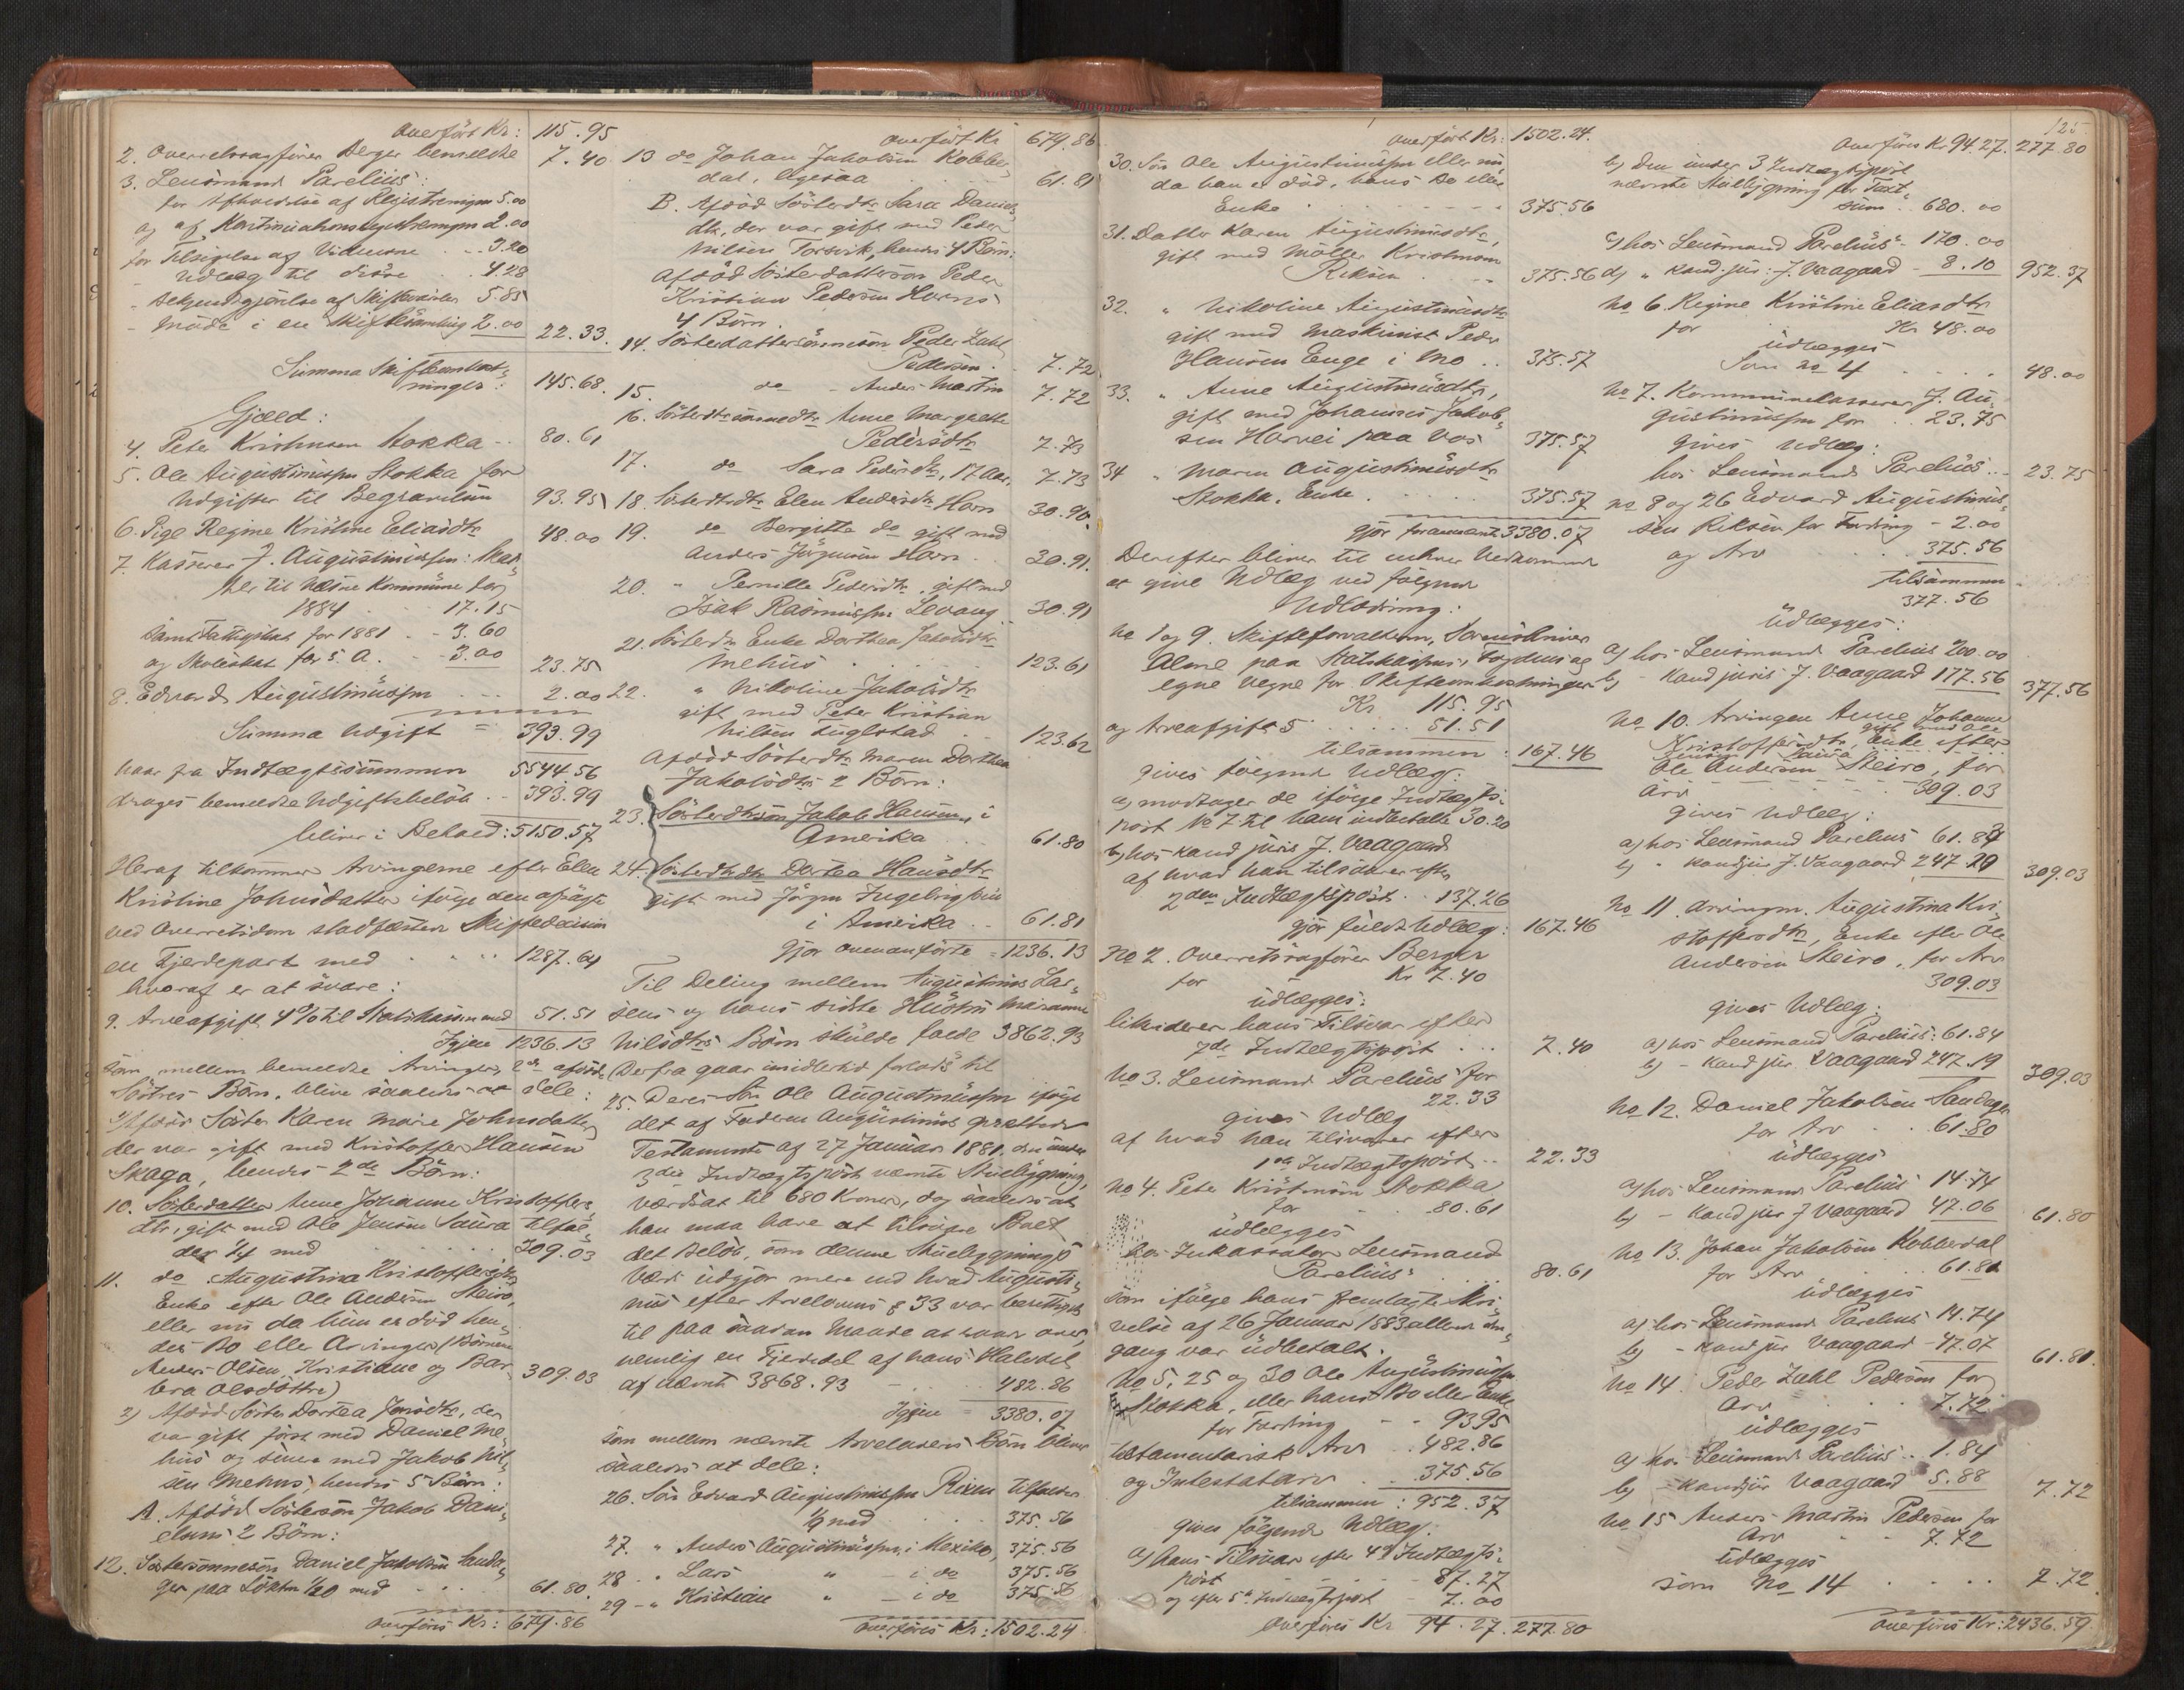 Overført Kr: 115.95
2. Overretssagfører Berger bemeldte 7.40
3. Lensmand Parelius:
for Afholdelse af Registreringen 5.00
og af Kontinuationsregistreringen 2.00
for Tilsigelse af Vidnerne 3.20
- Udlæg til disse 4.28
- Bekjendtgjørelse af Skiftesamlin 5.85
- Møde i en Skiftesamling 2.00 22.33
Summa Skifteomkost-
ninger: 145.68
Gjæld:
4. Peter Kristensen Stokka 80.61
5. Ole Augustinussen Stokka for
Udgifter til Begravelsen 93.95
6. Pige Regine Kristine Eliasdtr 48.00
7. Kasserer J. Augustinussen: Skat-
ter til Næsne Kommune for
1884 17.15
samt Fattigskat for 1881 3.60
og Skoleskat for s. A. 3.00 23.75
8. Edvard Augustinussen 2.00
Summa Udgift = 393.99
Naar fra Indtægtssummen 5544.56
drages bemeldte Udgiftsbeløb 393.99
bliver i Behold: 5150.57
Heraf tilkommer Arvingerne efter Elen
Kristine Johnsdatter ifølge den afsagte
ved Overretsdom stadfæstede Skiftedecision
en Fjerdepart med 1287.64
hvoraf er at svare:
9. Arveafgift 4% til Statskassen med 51.51
Igjen 1236.13
som mellem bemeldte Arvinger, 2de afdøde
Søstres Børn, blive saaledes at dele:
1) Afdøde Søster Karen Marie Johnsdatter
der var gift med Kristoffer Hansen
Skaga, hendes 2de Børn:
10. Søsterdatter Anne Johanne Kristoffers-
dtr, gift med Ole Jensen Saura tilfal-
der 1/4 med 309.03
11. do Augustina Kristoffersdtr
Enke efter Ole Andersen Steiro,
eller nu da hun er død hen-
des Bo eller Arvinger (Børnene
Anders Olsen, Kristiane og Bar-
bra Olsdøttre) 309.03
2) Afdød Søster Dortea Jonsdtr, der
var gift først med Daniel Me-
hus og senere med Jakob Nil-
sen Mehus, hendes 5 Børn:
A. Afdød Søstersøn Jakob Dani-
elsens 2 Børn:
12. Søstersønnesøn Daniel Jakobsen Sanda-
ger paa Løkten 1/20 med 61.80
Overføres Kr: 679.86
Overført Kr 679.86
13 do Johan Jakobsen Kobber-
dal, ligesaa 61.81
B. Afdød Søsterdtr Sara Daniels-
dtr, der var gift med Peder
Nilsen Forsvik, hendes 4 Børn:
Afdød Søsterdattersøn Peder
Kristian Pedersen Horns
4 Børn.
14. Søsterdattersønnesøn Peder Zahl
Pedersen 7.72
15. do - Anders Martin 7.72
16. Søsterdtrsønnedtr Anne Margrethe
Pedersdtr 7.73
17. do Sara Pedersdtr, 17 Aar, 7.73
18. Søsterdtrdtr Elen Andersdtr Horn 30.90
19. do Bergitte do gift med
Anders Jørgensen Horn 30.91
20. " Pernille Pedersdtr, gift med
Isak Rasmussen Levang 30.91
21. Søsterdtr Enke Dorthea Jakobsdtr
Mehus 123.61
22. " Nikoline Jakobsdtr
gift med Peter Kristian
Nilsen Fuglstad 123.62
Afdød Søsterdtr Maren Dorthea
Jakobsdtrs 2 Børn:
23. Søsterdtrsøn Jakob Hansen, i
Amerika 61.80
24. Søsterdtrdtr Dortea Hansdtr
gift med Jørgen Ingebrigtsen
i Amerika 61.81
Gjør ovenanførte = 1236.13
Til Deling mellem Augustinus Lar-
sens og hans sidste Hustru Marianne
Nilsdtrs Børn skulde falde 3862.93
Derfra gaar imidlertid forlods til
25. Deres Søn Ole Augustinussen ifølge
det af Faderen Augustinus oprettede
Testamente af 27 Januar 1881 den under
3die Indtægtspost nævnte Stuebygning,
værdsat til 680 Kroner, dog saaledes at
han maa have at tilsvare Boet
det Beløb, som denne Stuebygnings
Værd udgjør mere end hvad Augusti-
nus efter Arvelovens § 33 var berettiget
til paa saadan Maade at raade over
nemlig en Fjerdedel af hans Halvdel
af nævnte 3868.93 482.86
Igjen = 3380.07
som mellem nævnte Arveladeres Børn bliver
saaledes at dele:
26. Søn Edvard Augustinussen Rixen tilfalder
1/9 med 375.56
27. " Anders Augustinussen, i Mexiko, 375.56
28 " Lars " - i do 375.56
29 - " Kristian " - i do 375.56
Overføres Kr: 1502.24
Overført Kr: 1502.24.
30. Søn Ole Augustinussen eller nu
da han er død, hans Bo eller
Enke 375.56
31. Datter Karen Augustinusdtr,
gift med Møller Kristensen
Riksen 375.56
32. " Nikoline Augustinusdtr
gift med Maskinist Peder
Hansen Enge i Mo 375.57
33. " Anne Augustinusdtr,
gift med Johannes Jakob-
sen Horvei paa Vas 375.57
34 " Maren Augustinusdtr
Stokka, Enke 375.57
gjør foranmeldte 3380.07
Derefter bliver til enhver Vedkommende
at give Udlæg ved følgende
Udlodning:
No 1 og 9. Skifteforvalteren, Sorenskriver
Alme paa Statskassens, Fogdens og
egne Vegne for Skifteomkostninger
Kr 115.95
og Arveafgift 51.51
tilsammen: 167.46
gives følgende Udlæg:
a) modtager de ifølge Indtægts-
post No 7 til ham indbetalte 30.20
b) hos kand juris J. Vaagaard
af hvad han tilsvarer efter
2den Indtægtspost 137.26
gjør fuldt Udlæg: 167.46
No 2. Overretssagfører Berger
for Kr 7.40
udlægges:
likviderer hans Tilsvar efter
7de Indtægtspost 7.40
No 3. Lensmand Parelius for
22.33
gives Udlæg
af hvad han tilsvarer efter
1ste Indtægtspost 22.33
No 4. Peter Kristensen Stokka
for 80.61
udlægges
hos Inkassator Lensmand
Parelius 80.61
som ifølge hans fremlagte Skri-
velse af 26 Januar 1883 allerede den-
gang var udbetalt.
No 5, 25 og 30 Ole Augustinussen
Stokka, eller hans Bo eller Enke
for Fordring 93.95
testamentarisk Arv 482.86
og Intestatarv 375.56
tilsammen: 952.37
gives følgende Udlæg:
a) hans Tilsvar efter 4de Indtægts-
post 87.27
og efter 5te Indtægtspost 7.00
Overføres Kr 94.27. 277.80
125
Overføres Kr 94.27. 277.80
b) Den under 3 Indtægtspost
nævnte Stuebygning for Taxt-
sum 680.00
c) hos Lensmand Parelius 170.00
d) " kand. jur: J. Vaagaard 8.10 952.37
No 6. Regine Kristine Eliasdtr
for Kr 48.00
udlægges
Som no 4 48.00
No 7. Kommunekasserer J. Au-
gustinussen for 23.75
gives Udlæg:
hos Lensmand Parelius 23.75
No 8 og 26 Edvard Augustinus-
sen Riksen for Fordring - 2.00
og Arv 375.56
tilsammen
377.56
Udlægges:
a) hos Lensmand Parelius 200.00
b) - Kand juris J. Vaagaard 177.56 377.56
No 10. Arvingen Anne Johanne
Kristoffersdtr, gift med Ole
Jensen Saura Enke efter
Ole Andersen Steiro, for
Arv 309.03
gives Udlæg:
a) hos Lensmand Parelius 61.84
b) " Kand jur J. Vaagaard 247.20 309.03
No 11. Arvingen Augustina Kri-
stoffersdtr, Enke efter Ole
Andersen Steiro, for Arv
309.03
gives Udlæg:
a) hos Lensmand Parelius: 61.84
b) - Kand jur Vaagaard 247.19 309.03
No 12. Daniel Jakobsen Sandager
for Arv 61.80
udlægges
a) hos Lensmand Parelius 14.74
b) - Kand jur J Vaagaard 47.06 61.80
No 13. Johan Jakobsen Kobberdal
for Arv 61.81
udlægges
a) hos Lensmand Parelius 14.74
b) - Kand jur Vaagaard - 47.07 61.81
No 14. Peder Zahl Pedersen for
Arv 7.72
udlægges
a) hos Lensmand Parelius 1.84
b) - Kand jur Vaagaard 5.88 7.72
No 15 Anders Martin Pedersen for
Arv 7.72
Udlægges
som No 14 7.72
Overføres Kr: 2436.59